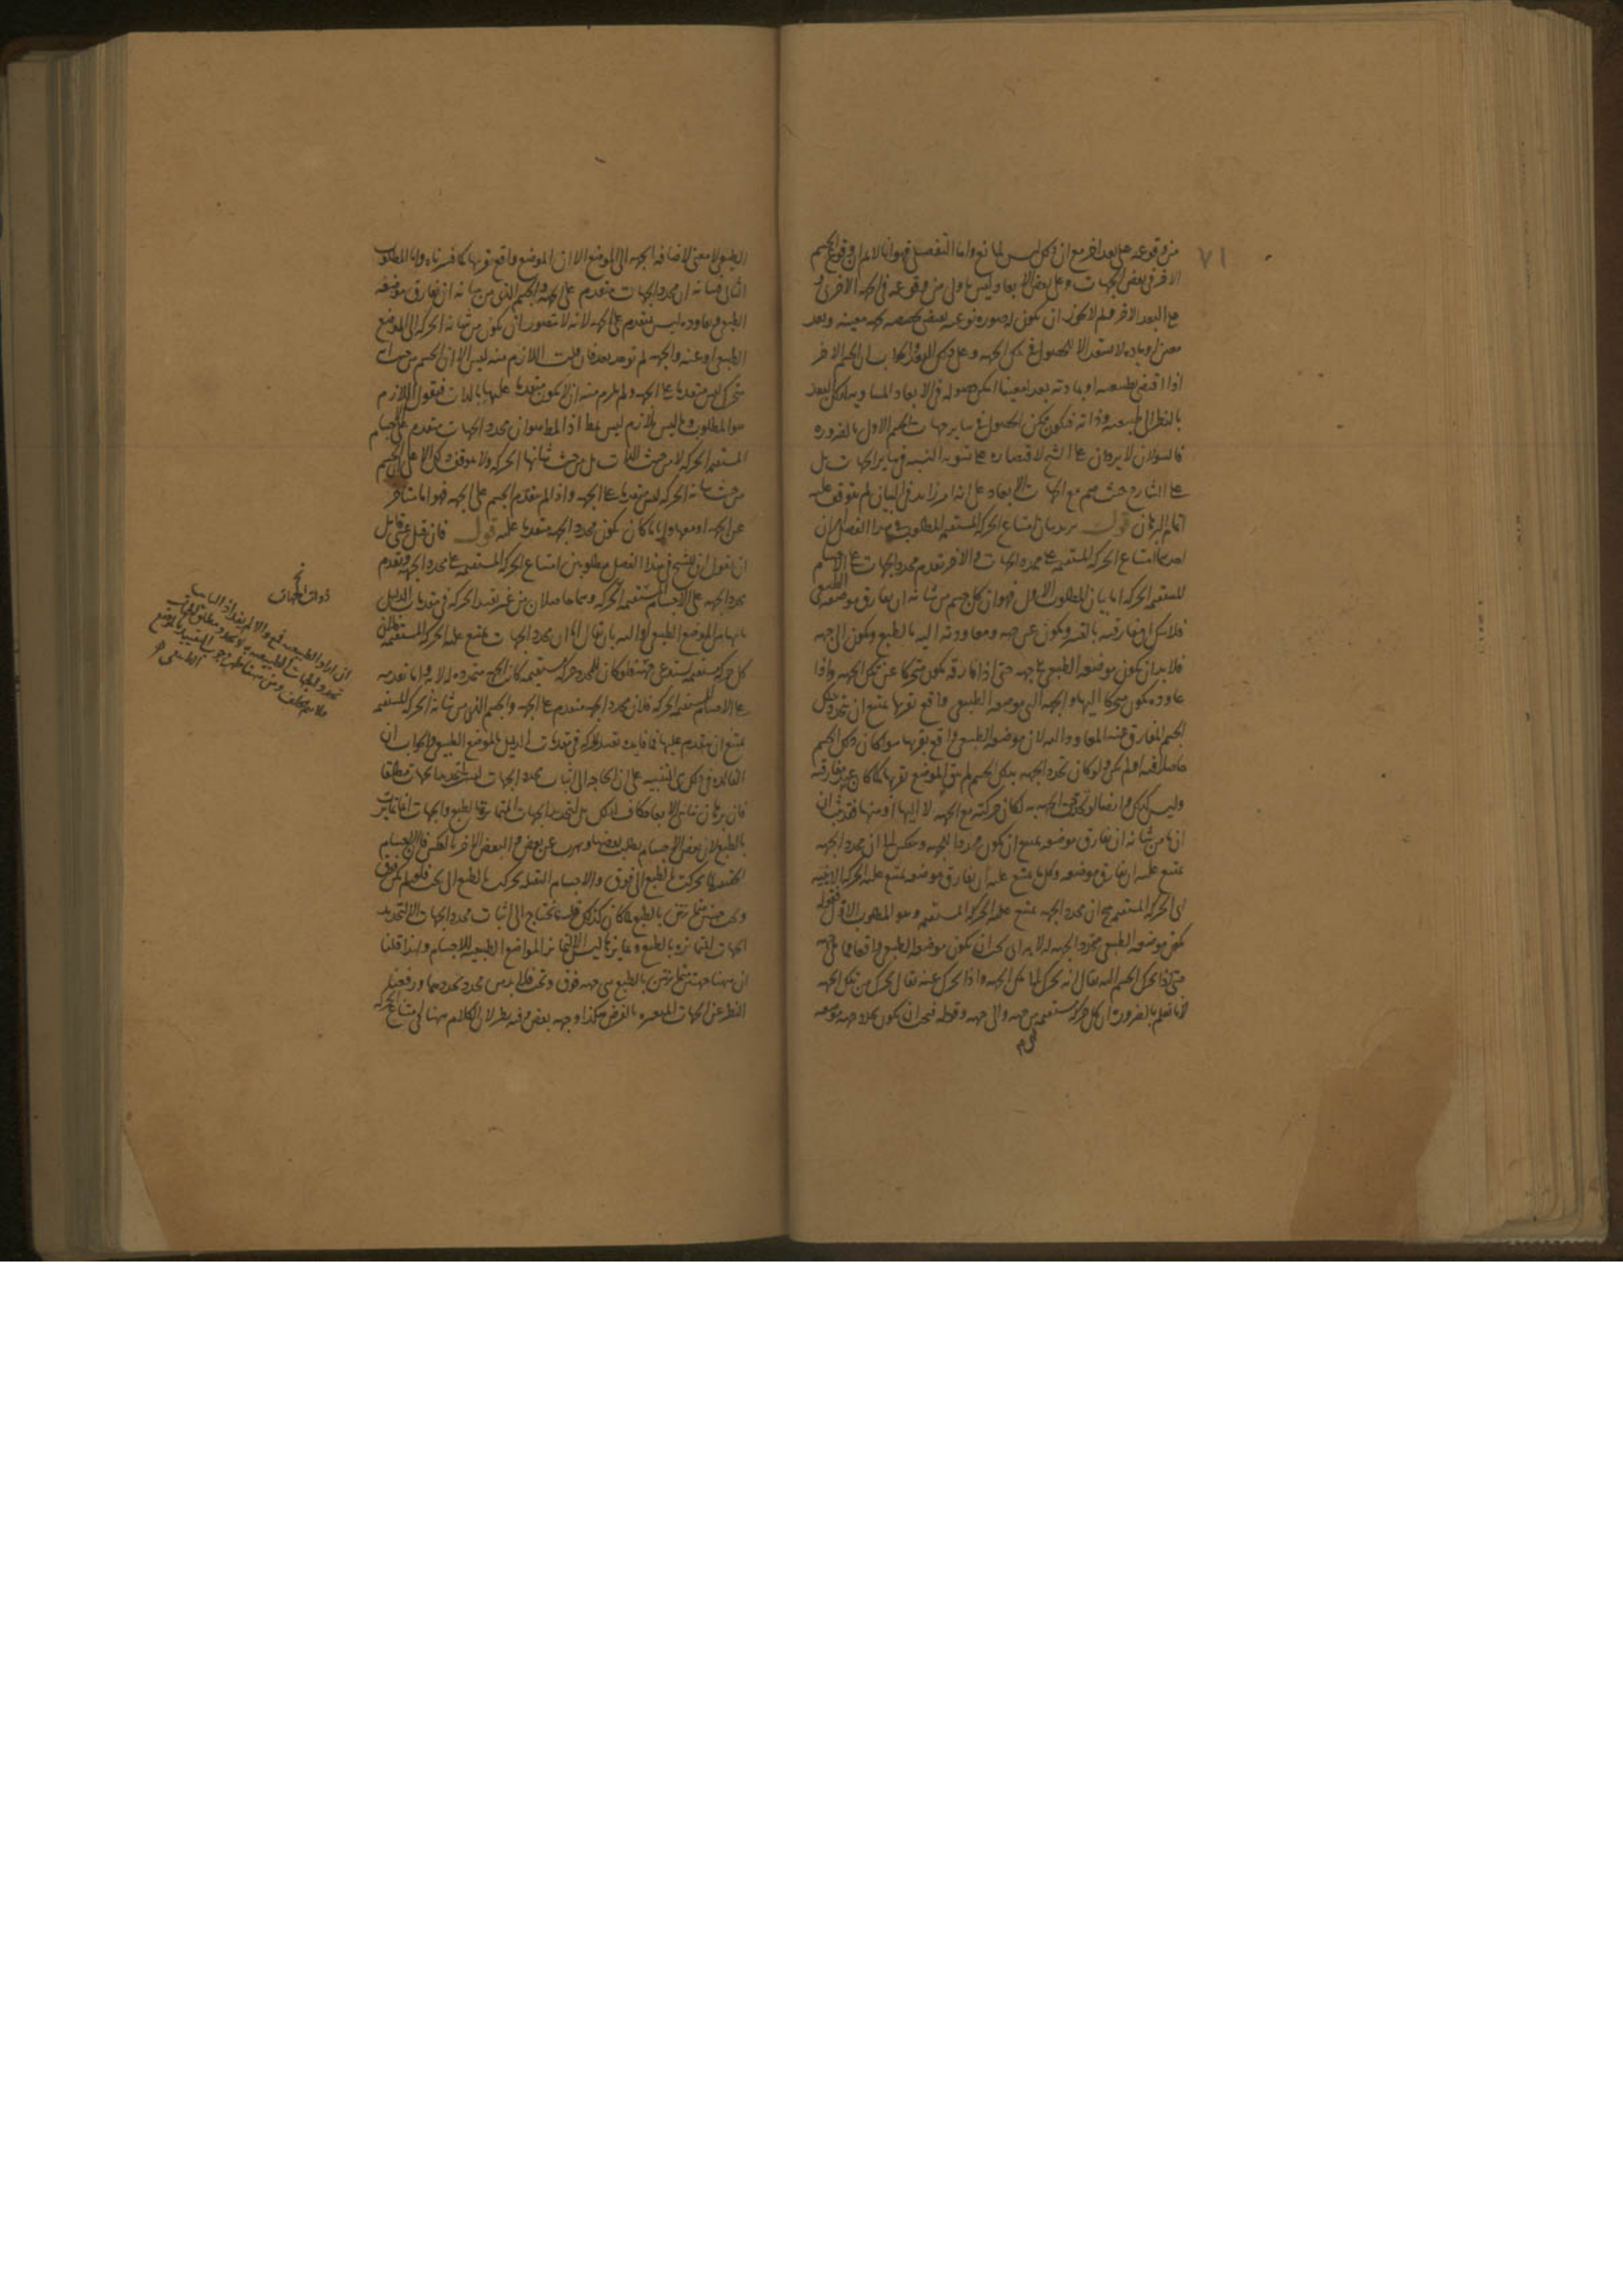 ٧١
من وقوعه على بعد اخر مع ان ذلك ليس لمانع واما التفصيل فهو انا لا نم ان وقوع الجسم
الاخر في بعض الجهات وعلى بعض الابعاد ليس باولى من وقوعه في الجهة الاخرى و
على البعد الاخر فلم لا يجوز ان يكون له صورة نوعية يقتضى تخصصه بجهة معينة وبعد
معين او مادة لا تستعد الا للحصول في تلك الجهة وعلى ذلك البعد والجواب ان الجسم الاخر
اذا اقتضى طبيعته او مادته بعدا معينا امكن حصوله في الابعاد المساوية لذلك البعد
بالنظر الى طبيعته وذاته فيكون ممكن الحصول في ساير جهات الجسم الاول بالضرورة
فالسؤلان لا يردان على الشيخ لاقتصاره على تسوية النسبة في ساير الجهات بل
على الشارح حيث ضم مع الجهات الابعاد على انه امر زايد في البيان لم يتوقف عليه
اتمام البرهان قوله يريد بيان امتناع الحركة المستقيمة المطلوب في هذا الفصل امران
احدهما امتناع الحركة المستقيمة على محدد الجهات والاخر تقدم محدد الجهات على الاجسام
المستقيمة الحركة اما بيان المطلوب الاول فهو ان كل جسم من شانه ان يفارق موضعه الطبيعي
فلا شك ان مفارقته بالقسر ويكون عن جهة ومعاودته اليه بالطبع ويكون الى جهة
فلا بد ان يكون موضعه الطبيعي في جهة حتى اذا فارقه يكون متحركا عن تلك الجهة واذا
عاوده يكون متحركا اليها والجهة التي موضعه الطبيعي واقع بقربها يمتنع ان تتحدد بذلك
الجسم المفارق عنه المعاود اليه لان موضعه الطبيعي واقع بقربها سواء كان ذلك الجسم
حاصلا فيه او لم يكن ولو كان تحدد الجهة بذلك الجسم لم يبق الموضع بقربها كما كان عند مفارقته
وليس كذلك وايضا لو تحددت الجهة به لكان حركته مع الجهة لا اليها او منها فقد ثبت ان
ان ما من شانه ان يفارق موضعه يمتنع ان يكون محددا للجهة وينعكس الى ان محدد الجهة
يمتنع عليه ان يفارق موضعه وكل ما يمتنع عليه ان يفارق موضعه يمتنع عليه الحركة الاينية
اى الحركة المستقيمة فمحدد الجهة يمتنع عليه الحركة المستقيمة وهو المطلوب الاول فقوله
يكون موضعه الطبيعي متحدد الجهة له لا به اى يجب ان يكون موضعه الطبيعي واقعا في جهة
حتى اذا تحرك الجسم اليه يقال انه تحرك الى تلك الجهة واذا تحرك عنه يقال تحرك من تلك الجهة
لانا نعلم بالضرورة ان كل حركة مستقيمة من جهة والى جهة وقوله فيجب ان يكون تحدد جهة موضعه
الطبيعي لا معنى لاضافة الجهة الى الموضع الا ان الموضع واقع بقربها كما فسرناه واما المطلوب
الثانى فبيانه ان محدد الجهات متقدم على الجهة والجسم الذى من شانه ان يفارق موضعه
الطبيعي ويعاوده ليس بمتقدم على الجهة لانه لا يتصور ان يكون من شانه الحركة الى الموضع
الطبيعي او عنه والجهة لم توجد بعد فان قلت اللازم منه ليس الا ان الجسم من حيث انه
متحرك ليس متقدما على الجهة ولم يلزم منه ان لا يكون متقدما عليها بالذات فنقول اللازم
هو المطلوب وما ليس بلازم ليس بمط اذ المط هو ان محدد الجهات متقدم على الاجسام
المستقيمة الحركة لا من حيث الذات بل من حيث شانها الحركة ولا يتوقف ذلك الا على ان الجسم
من حيث شانه الحركة ليس متقدما على الجهة واذا لم يتقدم الجسم على الجهة فهو اما متاخر
عن الجهة او معها وايا ما كان يكون محدد الجهة متقدما عليه قوله فان قيل لقايل
ان يقول ان للشيخ في هذا الفصل مطلوبين امتناع الحركة المستقيمة على محدد الجهة وتقدم
محدد الجهة على الاجسام المستقيمة الحركة وهما حاصلان من غير تقييد الحركة في مقدمات الدليل
بانها من الموضع الطبيعي او اليه بان يقال اما ان محدد الجهات يمتنع عليه الحركة المستقيمة فلان
كل حركة مستقيمة يستدعى جهة فلو كان للمحدد حركة مستقيمة كانت الجهة متحددة له لا به واما تقدمه
على الاجسام المستقيمة الحركة فلان محدد الجهة متقدم على الجهة والجسم الذى من شانه الحركة المستقيمة
يمتنع ان يتقدم عليها فما فايدة تقييد الحركة في مقدمات الدليل بالموضع الطبيعي والجواب ان
الفايدة في ذلك هى التنبيه على ان الحاجة الى اثبات محدد الجهات ليست لتحديد الجهات مطلقا
فان برهان تناهى الابعاد كاف لذلك بل لتحديد الجهات المتمايزة بالطبع والجهات انما تمايزت
بالطبع لان بعض الاجسام يطلب بعضها ويهرب عن بعض والبعض الاخر بالعكس فان الاجسام
الخفيفة لما تحركت بالطبع الى فوق والاجسام الثقيلة تحركت بالطبع الى تحت فلو لم يكن فوق
وتحت جهتين متمايزتين بالطبع لما كان كذلك فلا يحتاج الى اثبات محدد الجهات الا لتحديد
الجهات المتمايزة بالطبع وتمايزها ليس الا لتمايز المواضع الطبيعية للاجسام ولهذا قلنا
ان ههنا جهتين متمايزتين بالطبع هى جهة فوق وتحت فلا بد من محدد يحددهما ورفعنا
النظر عن الجهات المتغيرة بالفرض هكذا وجهه بعض وفيه نظر لان الكلام ههنا في امتناع الحركة
ذوات الجهات